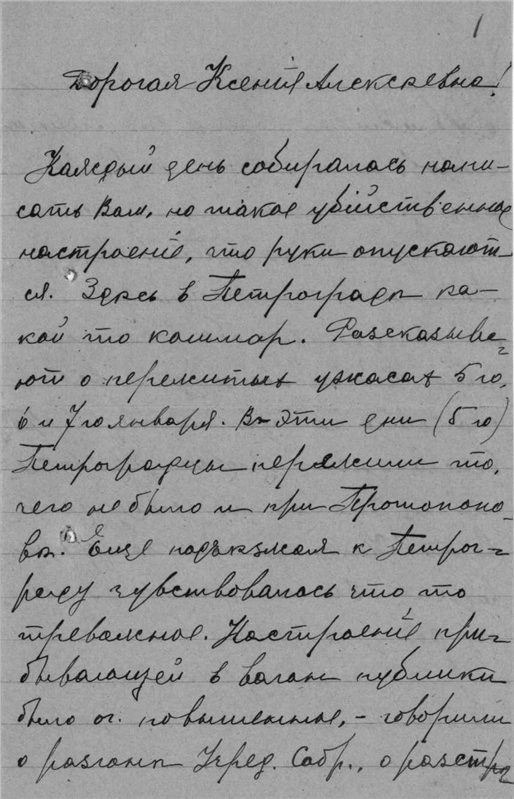 1
Дорогая Ксенiя Алексѣевна!
Каждый день собиралась напи-
сать Вам, но такое убiйственное
настроенiе, что руки опускают-
ся. Здѣсь в Петроградѣ ка-
кой то кошмар. Разсказыва=
ют о пережитых ужасах 5го,
6 и 7го января. В эти дни (5го)
Петроградцы пережили то,
чего не было и при Протопопо-
вѣ. Еще подъѣзжая к Петрог=
раду чувствовалась что то
тревожное. Настроенiе при-
бывающей в вагон публики
было оч. повышенное, – говорили
о разгонѣ Учред. Собр., о разстрѣ